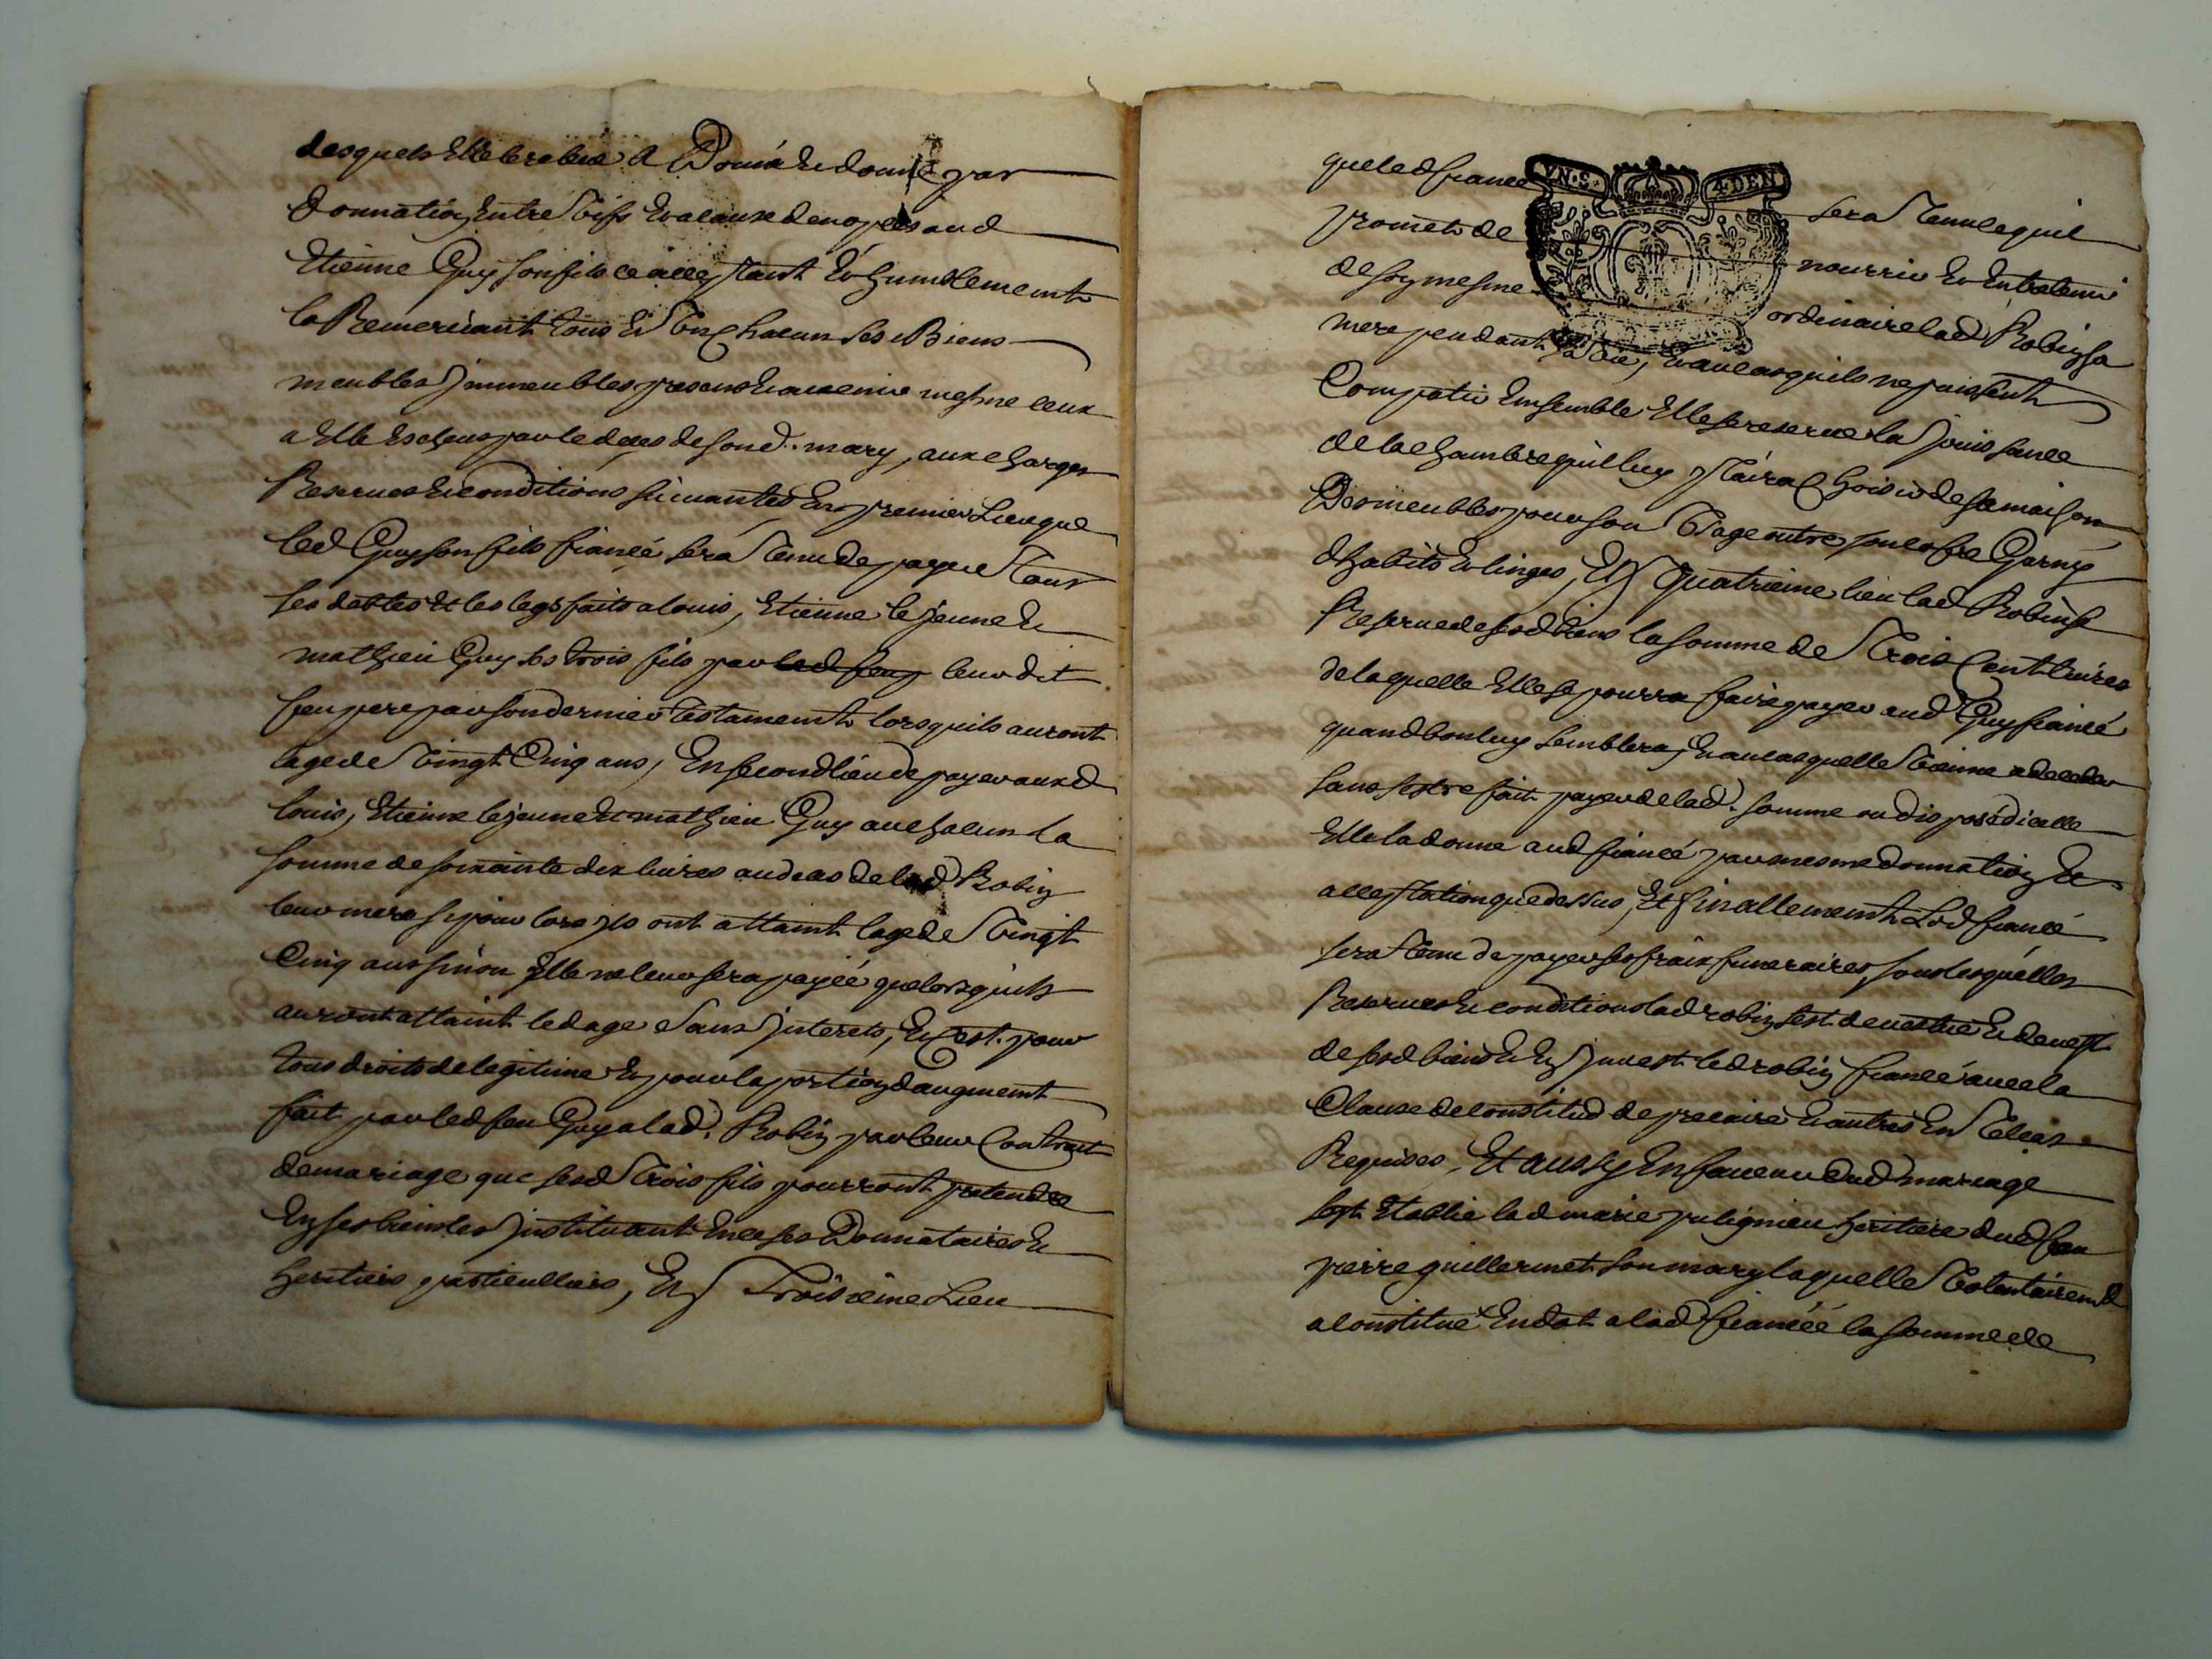 desquels Elle lrelui a Donné Et donne par
donnation Entre Vifs Et a cause de nopces aud
Etienne Guy son fils ce acceptant Et humblement
la Remerciant tous Et Un chacun ses Biens
meubles Jmmeubles presens Et avenir mesme ceux
a Elle Escheus par le deces de sond. mary, aux charges
Reserves Et conditions suivantes En premier Lieu que
led Guy son fils fiancé sera Tenu de payer Tous
ses debtes Et les legs faits a louis, Etienne le jeune Et
mathieu Guy ses trois fils par led feu leur dit
feu pere par son dernier Testament lorsquils auront
lage de Vingt Cinq ans, En second lieu de payer ausd
louis, Etienne le jeune Et mathieu Guy a chacun la
somme de soixante dix livres au deces de lad Robin
leur mere si pour lors jls ont attaint lage de Vingt
Cinq ans sinon Elle ne leur sera payée que lorsquils
auront attaint led age Sans Jnterets, Et C'est pour
tous droits de legitime Et pour la portion daugment
fait par led feu Guy a lad. Robin par leur Contrait
de mariage que sesd Trois fils pourront pretendre
En ses biens les Jnstituant En ce ses Donnataires Et
heritiers particulliers, En Troisieme Lieu
que led fiancé sera Tenu le quil
promet de nourrir Et Entretenir
de soy mesme ordinaire lad Robin sa
mere pendant sa Vie, Et au cas quils ne puissent
Compatir Ensemble Elle se reserve la Jouissance
de la chambre quil luy plaira Choisir de sa maison
Des meubles pour son Vsage outre son cofre Garny
dhabits Et linges, En quatrieme lieu lad Robin se
Reserve de sesd biens la somme de Trois Cent livres
de laquelle Elle se pourra faire payer aud Guy fiancé
quand bon luy semblera, Et au cas quelle Vienne a deceder
sans sestre fait payer de lad. somme ou disposé dicelle
Elle la donne aud fiancé par mesme donnation Et
acceptation que dessus, Et finallement Led fiancé
sera Tenu de payer ses fraix funeraires, sous lesquelles
Reserves Et conditions lad robin sest devestue Et devest
de sesd biens Et En Jnvest led robin fiancé avec la
Clause de constitud de precaire Et autres En Telcas
Requises, Et aussy En faveur dud mariage
sest Etablie lad marie pulignieu heritiere dud feu
pierre guillermet son mary laquelle Volontairemt
a constitué En dot a lad fiancée la somme de
VN.S. 4.DEN